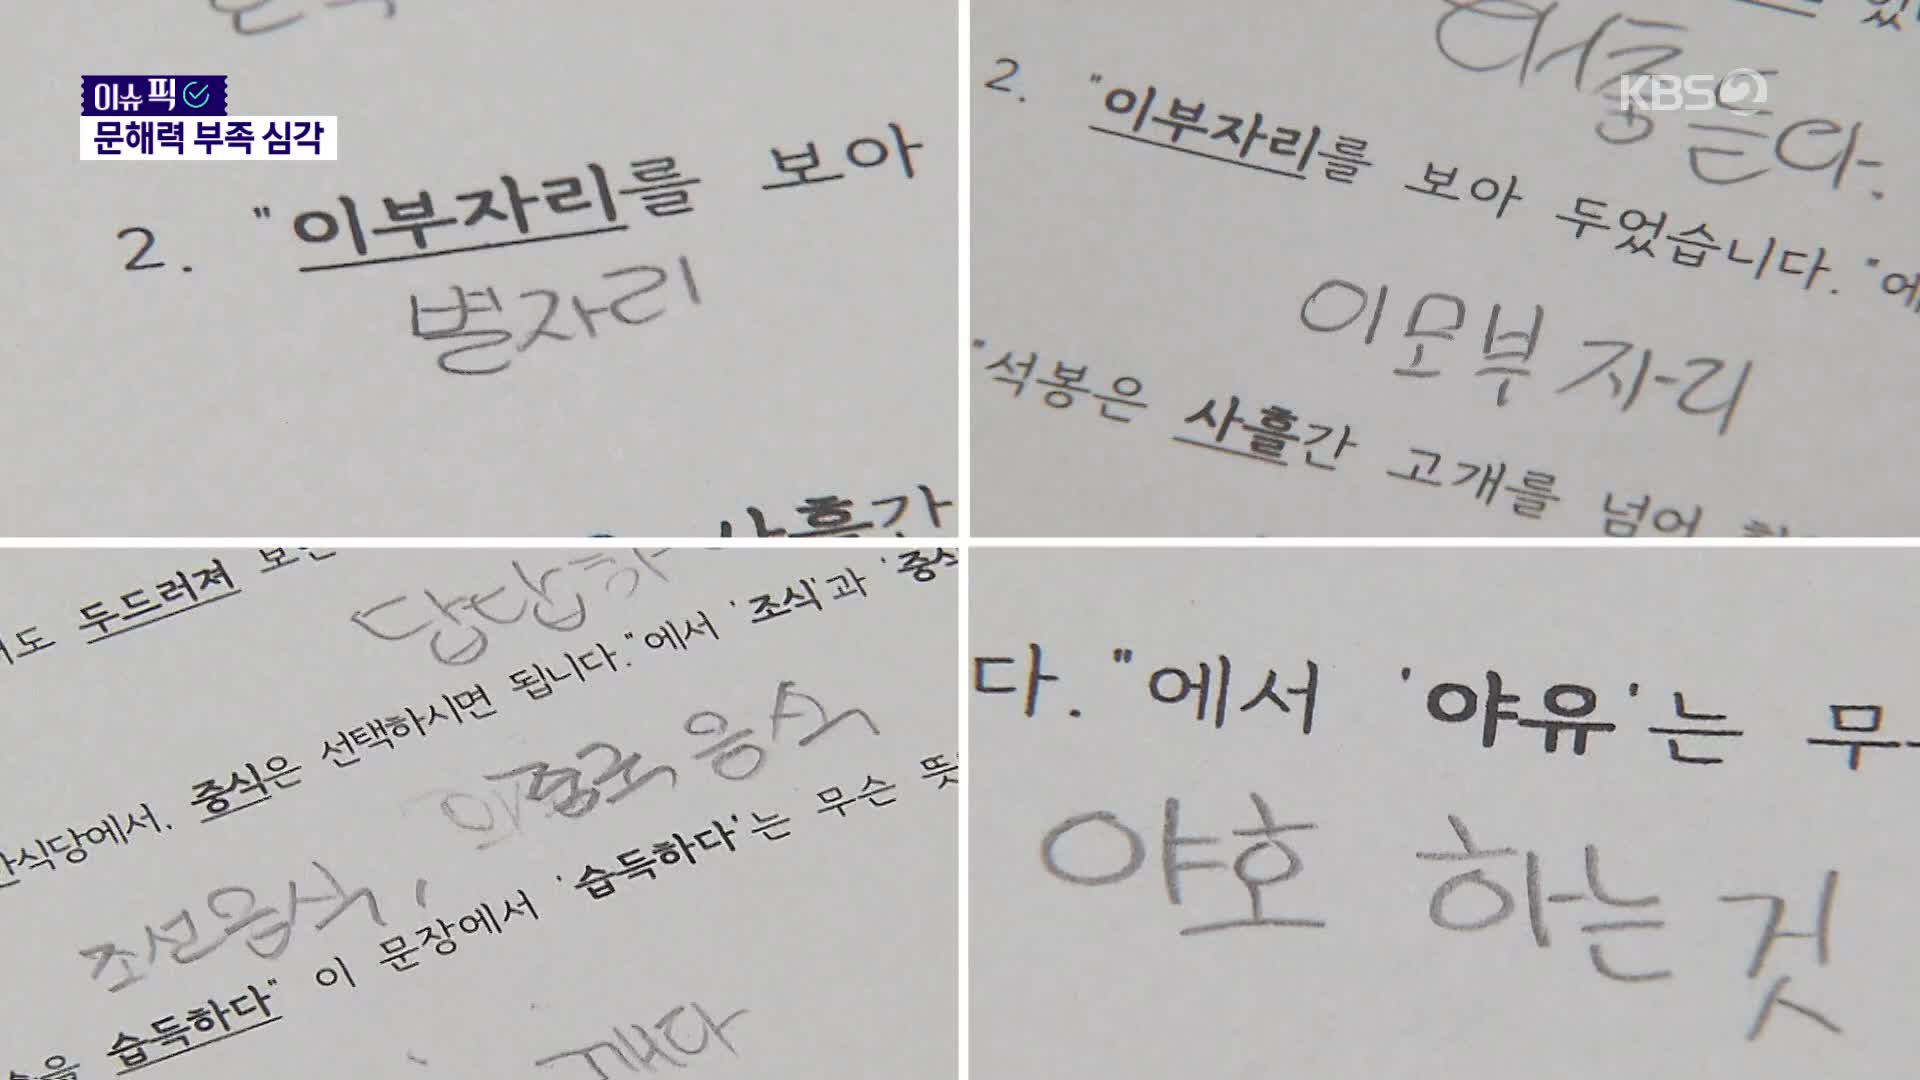 이슈 픽
문해력 부족 심각
KBS 2
2. "이부자리를 보아
별자리
사흘간
어흥 든다.
2. "이부자리를 보아 두었습니다. "에
이모부 자리
"석봉은 사흘간 고개를 넘어
두드러져
답답하
선택하시면 됩니다."에서 '조식'과 '중식
식당에서. 중식은
중국 음식
조선음식,
습득하다" 이 문장에서 '습득하다'는 무슨 뜻
깨다
다. "에서 '야유'는 무
야호 하는 것